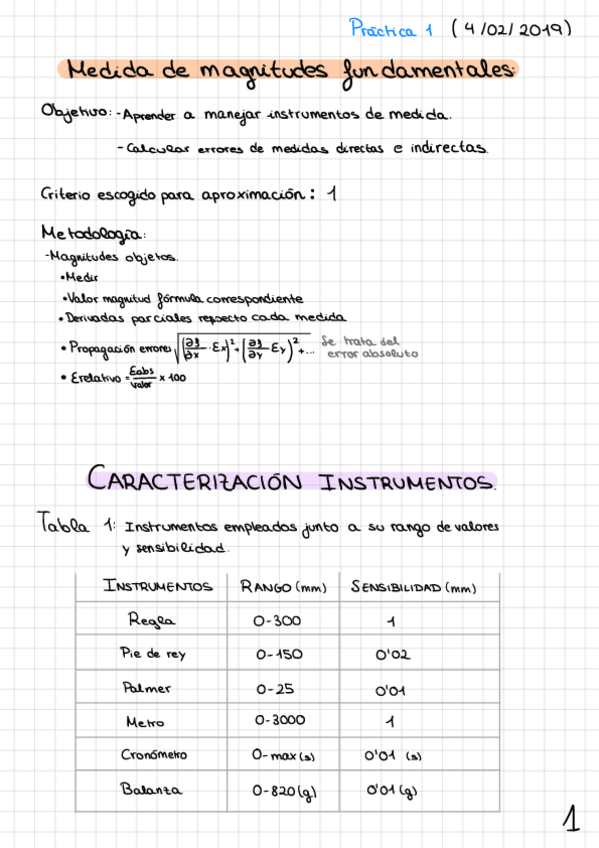 Práctica 1 (4/02/2019)
Medida de magnitudes fundamentales.
Objetivo: - Aprender a manejar instrumentos de medida.
- Calcular errores de medidas directas e indirectas.
Criterio escogido para aproximación: 1
Metodología:
- Magnitudes objetos.
• Medir
• Valor magnitud fórmula correspondiente
• Derivadas parciales respecto cada medida
• Propagación errores √((∂f/∂x · Ex)² + (∂f/∂y · Ey)² + ... Se trata del
error absoluto
• Erelativo = Eabs/valor × 100
CARACTERIZACIÓN INSTRUMENTOS.
Tabla 1: Instrumentos empleados junto a su rango de valores
y sensibilidad.
INSTRUMENTOS RANGO (mm) SENSIBILIDAD (mm)
Regla 0-300 1
Pie de rey 0-150 0'02
Palmer 0-25 0'01
Metro 0-3000 1
Cronómetro 0-max (s) 0'01 (s)
Balanza 0-820 (g) 0'01 (g)
1